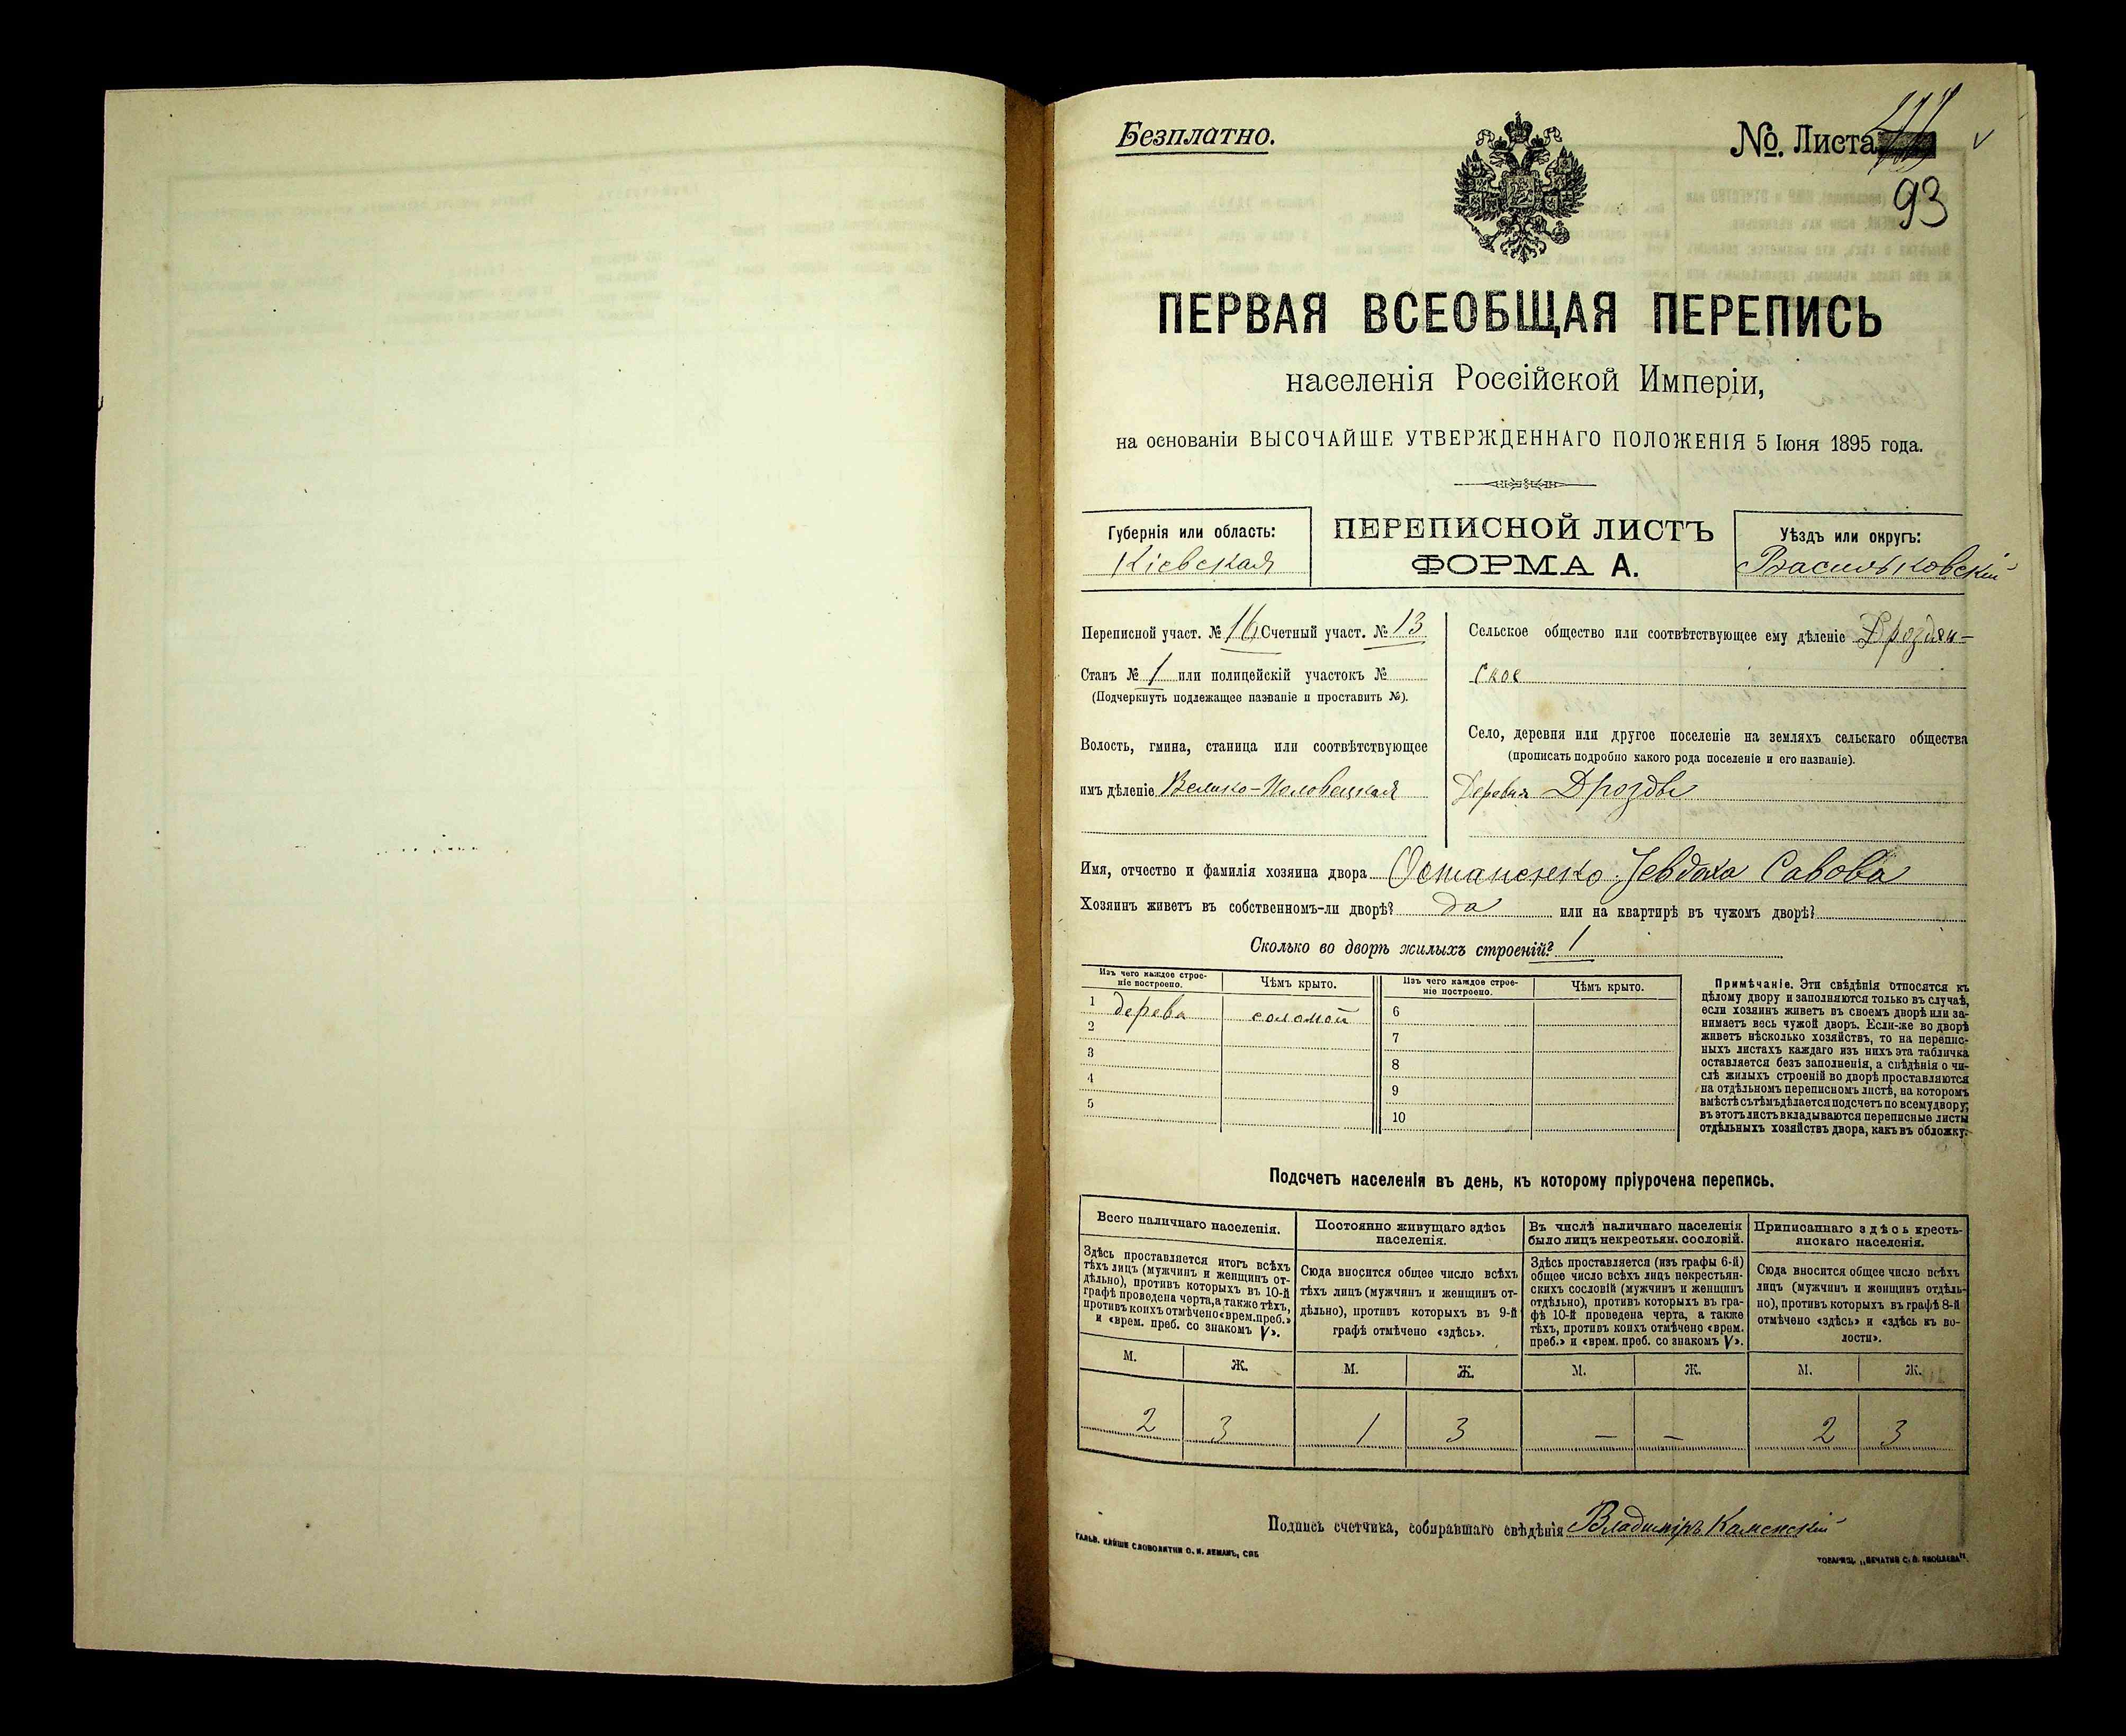 Безплатно.
No. Листа
93
ПЕРВАЯ ВСЕОБЩАЯ ПЕРЕПИСЬ
населенія Россійской Имперіи,
на основаніи ВЫСОЧАЙШЕ УТВЕРЖДЕННАГО ПОЛОЖЕНІЯ 5 Іюня 1895 года.
Губернія или область:
Кіевская
ПЕРЕПИСНОЙ ЛИСТЪ
ФОРМА А.
Уѣздъ или округъ:
Васильковскій
Переписной участ. № 16 Счетный участ. № 13
Станъ № 1 или полицейскій участокъ №
(Подчеркнуть подлежащее названіе и проставить №).
Волость, гмина, станица или соотвѣтствующее
имъ дѣленіе Велико-Половецкая
Сельское общество или соотвѣтствующее ему дѣленіе Дроздян-
ское
Село, деревня или другое поселеніе на земляхъ сельскаго общества
(прописать подробно какого рода поселеніе и его названіе).
Деревня Дрозды
Имя, отчество и фамилія хозяина двора Остапенко Јевдоха Савова
Хозяинъ живетъ въ собственномъ-ли дворѣ? да или на квартирѣ въ чужомъ дворѣ?
Сколько во дворѣ жилыхъ строеній? 1
Изъ чего каждое строе-
ніе построено.
Чѣмъ крыто.
Изъ чего каждое строе-
ніе построено.
Чѣмъ крыто.
1 дерева соломой 6
2 7
3 8
4 9
5 10
Примѣчаніе. Эти свѣдѣнія относятся къ
цѣлому двору и заполняются только въ случаѣ,
если хозяинъ живетъ въ своемъ дворѣ или за-
нимаетъ весь чужой дворъ. Если-же во дворѣ
живетъ нѣсколько хозяйствъ, то на перепис-
ныхъ листахъ каждаго изъ нихъ эта табличка
оставляется безъ заполненія, а свѣдѣнія о чи-
слѣ жилыхъ строеній во дворѣ проставляются
на отдѣльномъ переписномъ листѣ, на которомъ
вмѣстѣ съ тѣмъ дѣлается подсчетъ по всему двору;
въ этотъ листъ вкладываются переписные листы
отдѣльныхъ хозяйствъ двора, какъ въ обложку.
Подсчетъ населенія въ день, къ которому пріурочена перепись.
Всего наличнаго населенія.
Здѣсь проставляется итогъ всѣхъ
тѣхъ лицъ (мужчинъ и женщинъ от-
дѣльно), противъ которыхъ въ 10-й
графѣ проведена черта, а также тѣхъ,
противъ коихъ отмѣчено «врем. преб.»
и «врем. преб. со знакомъ V».
Постоянно живущаго здѣсь
населенія.
Сюда вносится общее число всѣхъ
тѣхъ лицъ (мужчинъ и женщинъ от-
дѣльно), противъ которыхъ въ 9-й
графѣ отмѣчено «здѣсь».
Въ числѣ наличнаго населенія
было лицъ некрестьян. сословій.
Здѣсь проставляется (изъ графы 6-й)
общее число всѣхъ лицъ некрестьян-
скихъ сословій (мужчинъ и женщинъ
отдѣльно), противъ которыхъ въ гра-
фѣ 10-й проведена черта, а также
тѣхъ, противъ коихъ отмѣчено «врем.
преб.» и «врем. преб. со знакомъ V».
Приписаннаго здѣсь кресть-
янскаго населенія.
Сюда вносится общее число всѣхъ
лицъ (мужчинъ и женщинъ отдѣль-
но), противъ которыхъ въ графѣ 8-й
отмѣчено «здѣсь» и «здѣсь въ во-
лости».
М. Ж. М. Ж. М. Ж. М. Ж.
2 3 1 3 – – 2 3
Подпись счетчика, собиравшаго свѣдѣнія Владиміръ Каменскій
ГАЛЬВ. КЛИШЕ СЛОВОЛИТНИ О. И. ЛЕМАНЪ, СПБ
ТОВАРИЩ. „ПЕЧАТНЯ С. П. ЯКОВЛЕВА".